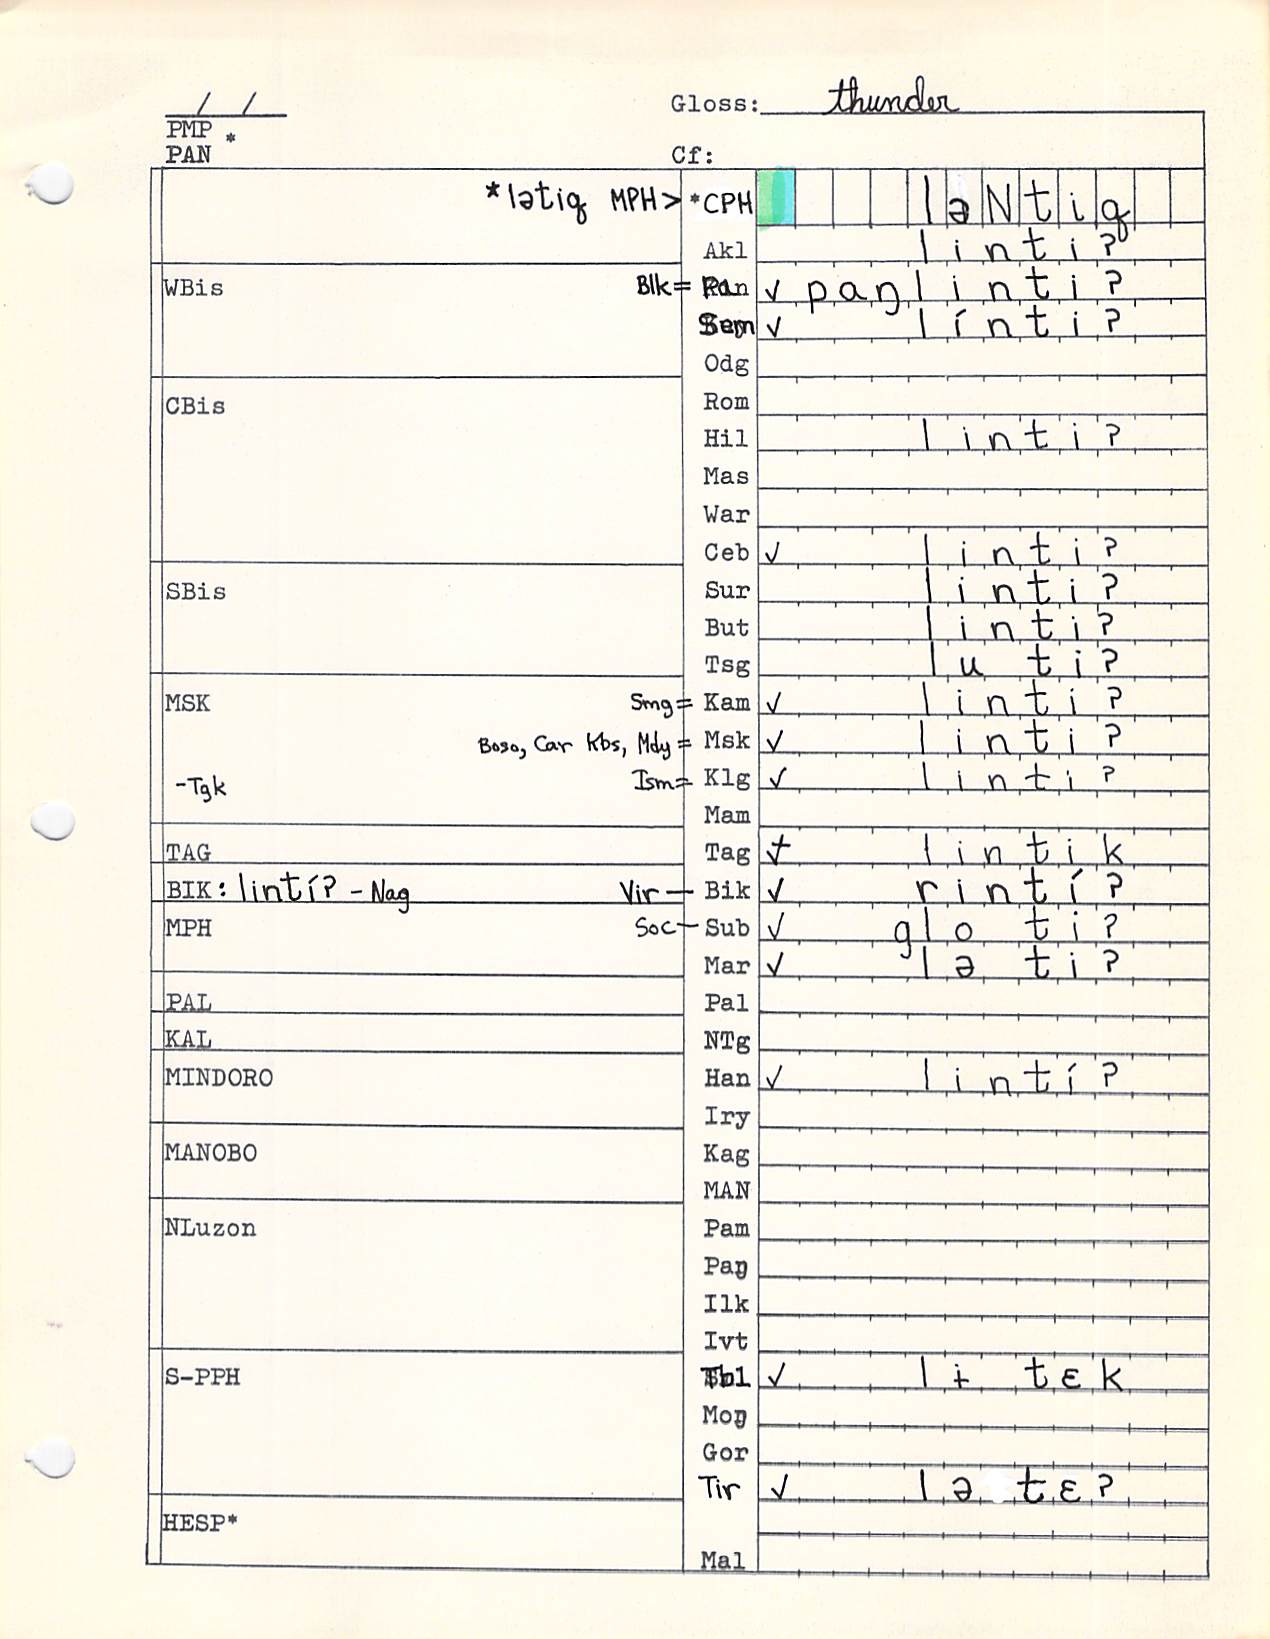 / /
Gloss: thunder
PMP *
PAN
Cf:
*lətiq MPH> *CPH ləNtiq
Akl linti?
WBis Blk= ✓ paŋlinti?
Sem ✓ línti?
Odg
CBis Rom
Hil linti?
Mas
War
Ceb ✓ linti?
SBis Sur linti?
But linti?
Tsg lu ti?
MSK Smg= Kam ✓ linti?
Boso, Car Kbs, Mdy= Msk ✓ linti?
-Tgk Ism= Klg ✓ linti?
Mam
TAG Tag ✓ lintik
BIK: lintí? - Nag Vir— Bik ✓ rintí?
MPH Soc— Sub ✓ glo ti?
Mar ✓ lə ti?
PAL Pal
KAL NTg
MINDORO Han ✓ lintí?
Iry
MANOBO Kag
MAN
NLuzon Pam
Paŋ
Ilk
Ivt
S-PPH Tbl ✓ lɨ tɛk
Moŋ
Gor
Tir ✓ lə tɛ?
HESP*
Mal